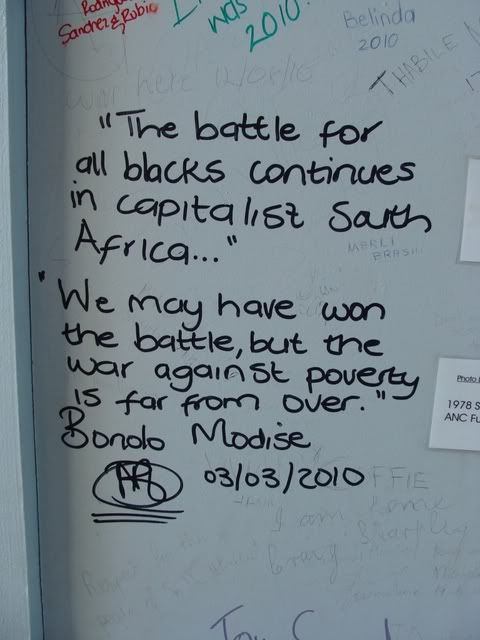 Sanchez & Rubio
was
2010
Belinda
2010
THABILE
was here 12/03/10
"The battle for
all blacks continues
in capitalist South
Africa..."
MERLI
BRASIL
"We may have won
the battle, but the
war against poverty
is far from over."
Bonolo Modise
03/03/2010
Photo
1978 S
ANC FU
FFIE
I am